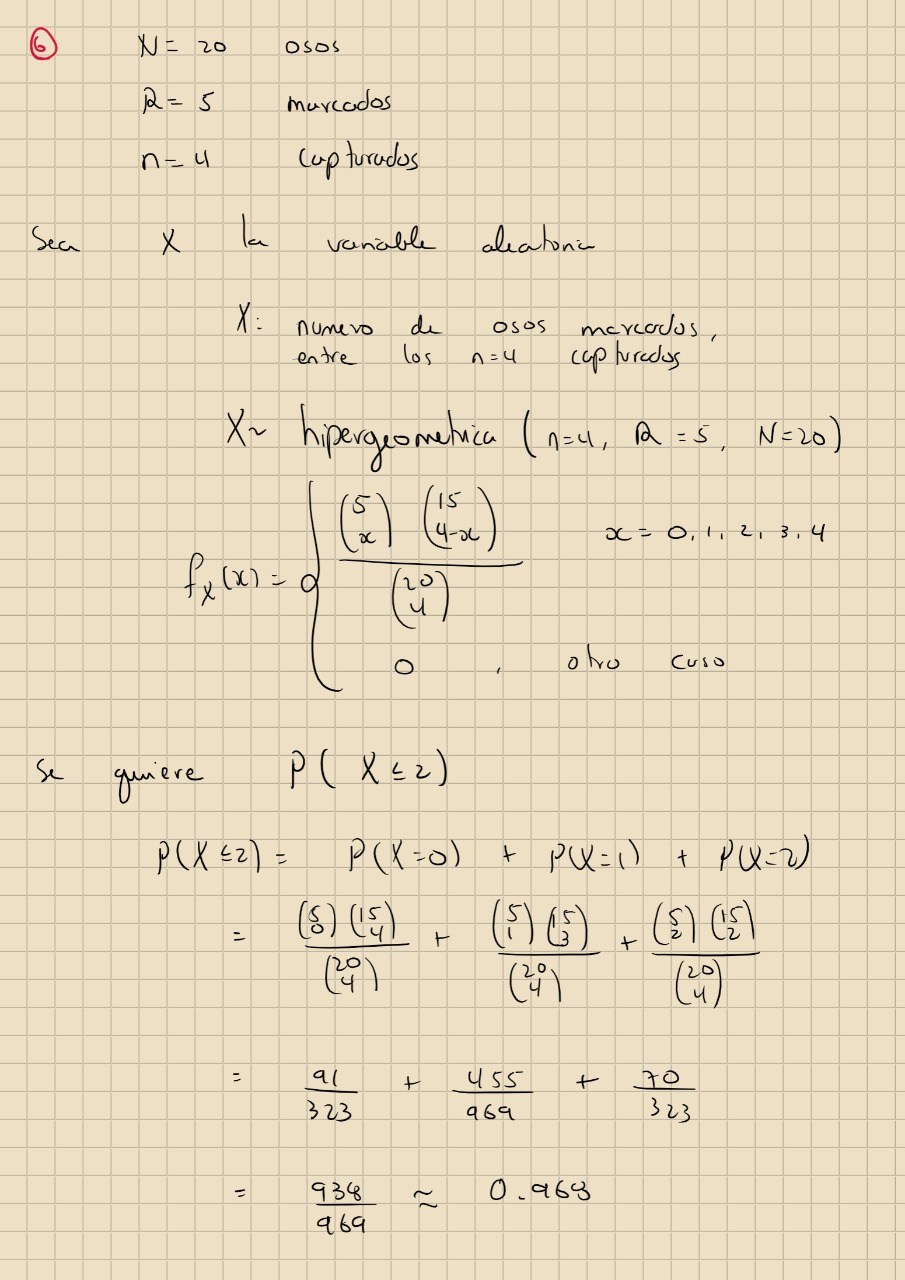 6 N = 20 osos
R = 5 marcados
n = 4 capturados
Sea X la variable aleatoria
X: numero de osos marcados,
entre los n=4 capturados
X ~ hipergeometrica (n=4, R=5, N=20)
f_X(x) = { \frac{\binom{5}{x} \binom{15}{4-x}}{\binom{20}{4}} x = 0, 1, 2, 3, 4
0 , otro caso
Se quiere P( X ≤ 2)
P(X ≤ 2) = P(X=0) + P(X=1) + P(X=2)
= \frac{\binom{5}{0} \binom{15}{4}}{\binom{20}{4}} + \frac{\binom{5}{1} \binom{15}{3}}{\binom{20}{4}} + \frac{\binom{5}{2} \binom{15}{2}}{\binom{20}{4}}
= \frac{91}{323} + \frac{455}{969} + \frac{70}{323}
= \frac{938}{969} ≈ 0.968